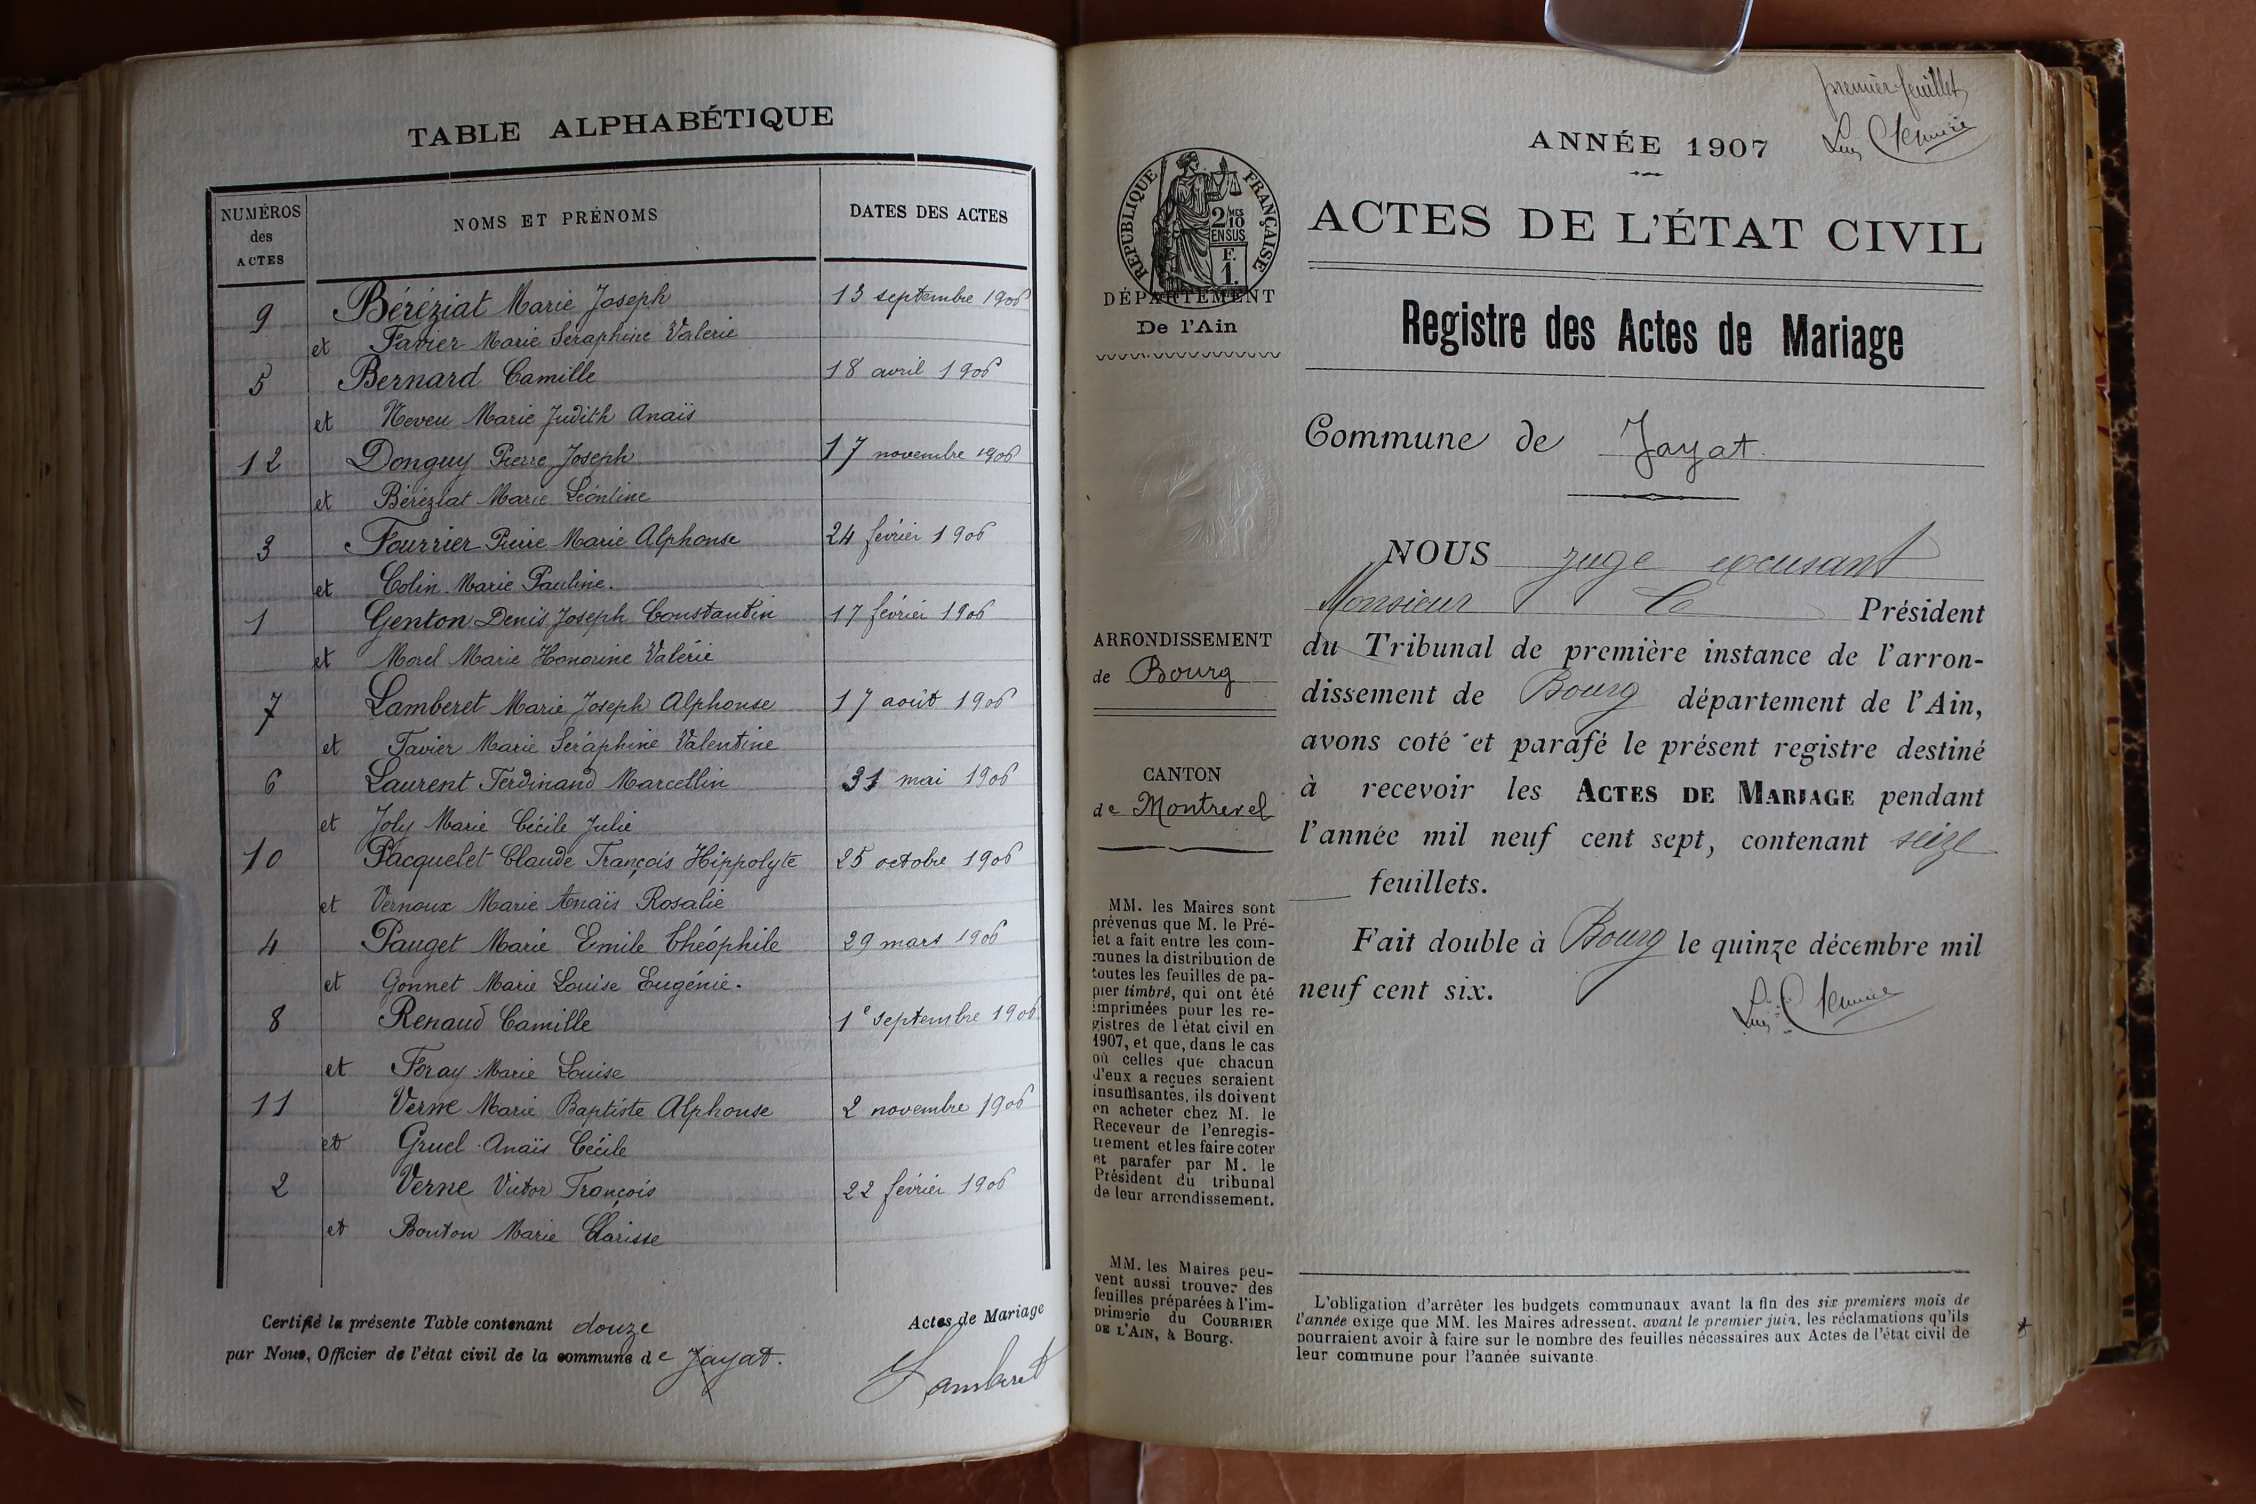 TABLE ALPHABÉTIQUE
NUMÉROS des ACTES
NOMS ET PRÉNOMS
DATES DES ACTES
9 Béréziat Marie Joseph 13 septembre 1906
et Favier Marie Séraphine Valérie
5 Bernard Camille 18 avril 1906
et Neveu Marie Judith Anaïs
12 Donguy Pierre Joseph 17 novembre 1906
et Béréziat Marie Léontine
3 Fourrier Pierre Marie Alphonse 24 février 1906
et Colin Marie Pauline.
1 Genton Denis Joseph Constantin 17 février 1906
et Morel Marie Honorine Valérie
7 Lamberet Marie Joseph Alphonse 17 août 1906
et Favier Marie Séraphine Valentine
6 Laurent Ferdinand Marcellin 31 mai 1906
et Joly Marie Cécile Julie
10 Pacquelet Claude François Hippolyte 25 octobre 1906
et Vernoux Marie Anaïs Rosalie
4 Pauget Marie Emile Théophile 29 mars 1906
et Gonnet Marie Louise Eugénie.
8 Renaud Camille 1e septembre 1906
et Foray Marie Louise
11 Verne Marie Baptiste Alphonse 2 novembre 1906
et Gruel Anaïs Cécile
2 Verne Victor François 22 février 1906
et Bouton Marie Clarisse
Certifié la présente Table contenant douze Actes de Mariage
par Nous, Officier de l'état civil de la commune de Jayat.
Lamberet
premier feuillet
ANNÉE 1907
ACTES DE L'ÉTAT CIVIL
RÉPUBLIQUE FRANÇAISE
2/10 MES
EN SUS
F.
1.
DÉPARTEMENT
De l'Ain
Registre des Actes de Mariage
Commune de Jayat.
NOUS juge excusant
Monsieur le Président
du Tribunal de première instance de l'arron-
dissement de Bourg département de l'Ain,
avons coté et parafé le présent registre destiné
à recevoir les ACTES DE MARIAGE pendant
l'année mil neuf cent sept, contenant seize
feuillets.
Fait double à Bourg le quinze décembre mil
neuf cent six.
ARRONDISSEMENT
de Bourg
CANTON
de Montrevel
MM. les Maires sont
prévenus que M. le Pré-
fet a fait entre les com-
munes la distribution de
toutes les feuilles de pa-
pier timbré, qui ont été
imprimées pour les re-
gistres de l'état civil en
1907, et que, dans le cas
où celles que chacun
d'eux a reçues seraient
insuffisantes, ils doivent
en acheter chez M. le
Receveur de l'enregis-
trement et les faire coter
et parafer par M. le
Président du tribunal
de leur arrondissement.
MM. les Maires peu-
vent aussi trouver des
feuilles préparées à l'im-
primerie du COURRIER
DE L'AIN, à Bourg.
L'obligation d'arrêter les budgets communaux avant la fin des six premiers mois de
l'année exige que MM. les Maires adressent, avant le premier juin, les réclamations qu'ils
pourraient avoir à faire sur le nombre des feuilles nécessaires aux Actes de l'état civil de
leur commune pour l'année suivante.